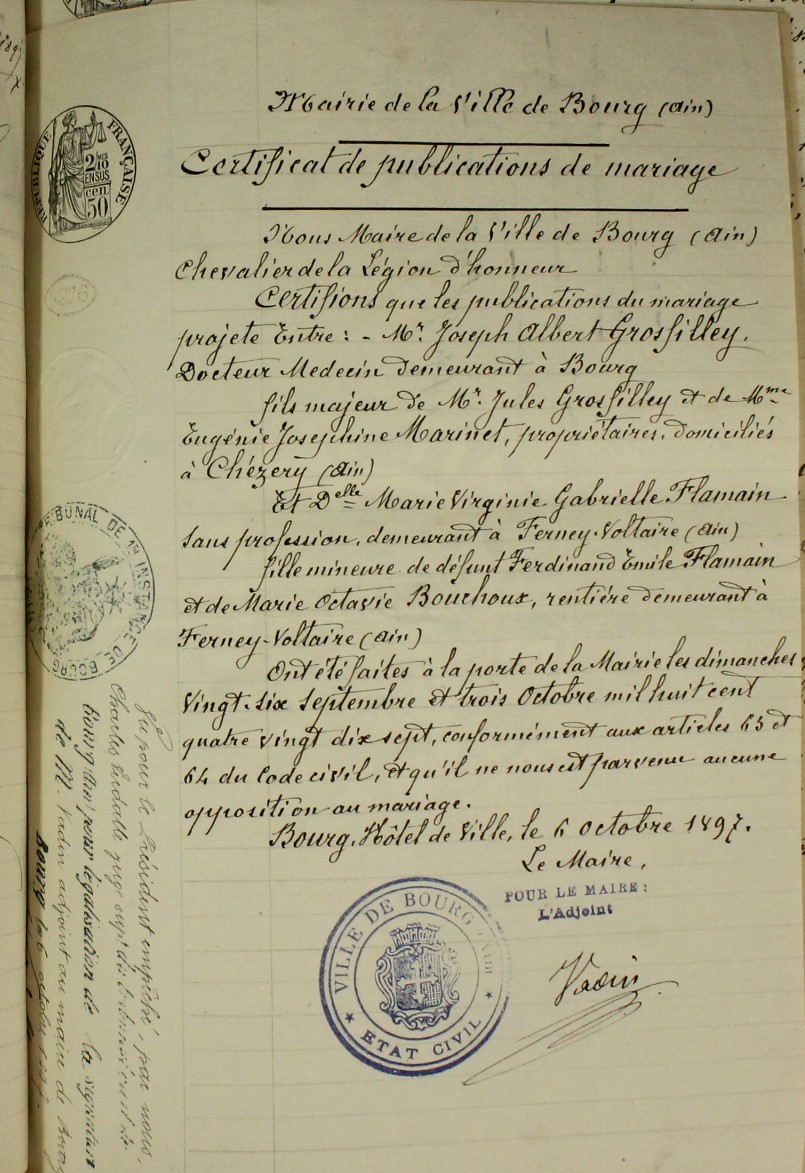 Mairie de la Ville de Bourg (Ain)
Certificat de publications de mariage
Nous Maire de la Ville de Bourg (Ain)
Chevalier de la Légion d'honneur
Certifions que les publications du mariage
projeté Entre : - Mr. Joseph Albert Grosfilley,
Docteur Medecin demeurant à Bourg
fils majeur de Mr. Jules Grosfilley et de Mme
Eugénie Josephine Marinet, propriétaires, domiciliés
à Chézery (Ain)
Et Delle Marie Virginie Gabrielle Flamain
sans profession, demeurant à Ferney-Voltaire (Ain)
fille mineure de défunt Ferdinand Emile Flamain
et de Marie Octavie Bouchoux, rentière demeurant à
Ferney-Voltaire (Ain)
Ont été faites à la porte de la Mairie les dimanches
Vingt-six Septembre et trois Octobre mil huit cent
quatre vingt dix sept, conformément aux articles 63 et
64 du Code civil, et qu'il ne nous est parvenu aucune
opposition au mariage.
Bourg, Hôtel de Ville, le 6 Octobre 1897.
Le Maire,
POUR LE MAIRE :
L'Adjoint
Vadin
VILLE DE BOURG (AIN)
ETAT CIVIL
REPUBLIQUE FRANÇAISE
2/10
EN SUS
50 cen
TRIBUNAL DE 1re INSTANCE DE BOURG
Vu pour le Président empêché, par nous,
Charles
Bourg (Ain) pour légalisation de la signature
de M. Vadin adjoint au maire de Bourg
Bourg le 6 octobre 1897.